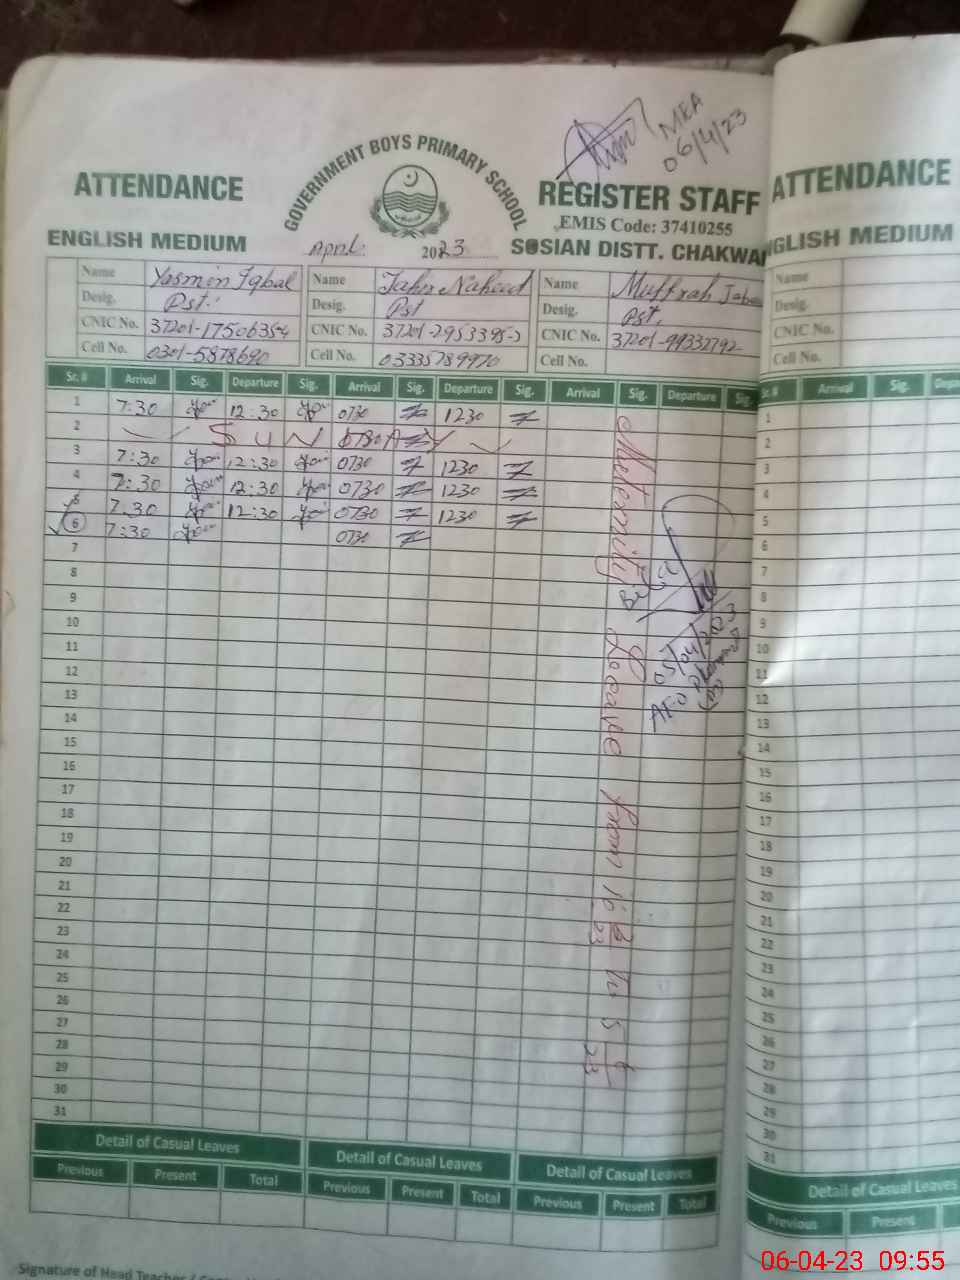 MEA
06/4/23
GOVERNMENT BOYS PRIMARY SCHOOL
ATTENDANCE REGISTER STAFF
EMIS Code: 37410255
ENGLISH MEDIUM April: 2023 SOSIAN DISTT. CHAKWAL
Name Yasmin Iqbal Name Tahir Naheed Name
Desig. Pst. Desig. Pst Desig. Pst.
CNIC No. CNIC No. CNIC No.
Cell No. 0301-5878690 Cell No. 03335789970 Cell No.
Sr. # Arrival Sig. Departure Sig. Arrival Sig. Departure Sig. Arrival Sig. Departure Sig.
1 7:30 12:30 0730 1230
2 SUNDAY
3 7:30 12:30 0730 1230
4 7:30 12:30 0730 1230
5 7:30 12:30 0730 1230
6 7:30 0730
7
8
9
10
11
12
13
14
15
16
17
18
19
20
21
22
23
24
25
26
27
28
29
30
31
Maternity Leave from
05/04/2023
AEO
Detail of Casual Leaves Detail of Casual Leaves Detail of Casual Leaves
Previous Present Total Previous Present Total Previous Present Total
Signature of Head Teacher /
ATTENDANCE
ENGLISH MEDIUM
Name
Desig.
CNIC No.
Cell No.
Sr. # Arrival Sig.
1
2
3
4
5
6
7
8
9
10
11
12
13
14
15
16
17
18
19
20
21
22
23
24
25
26
27
28
29
30
31
Detail of Casual Leaves
Previous Present
06-04-23 09:55